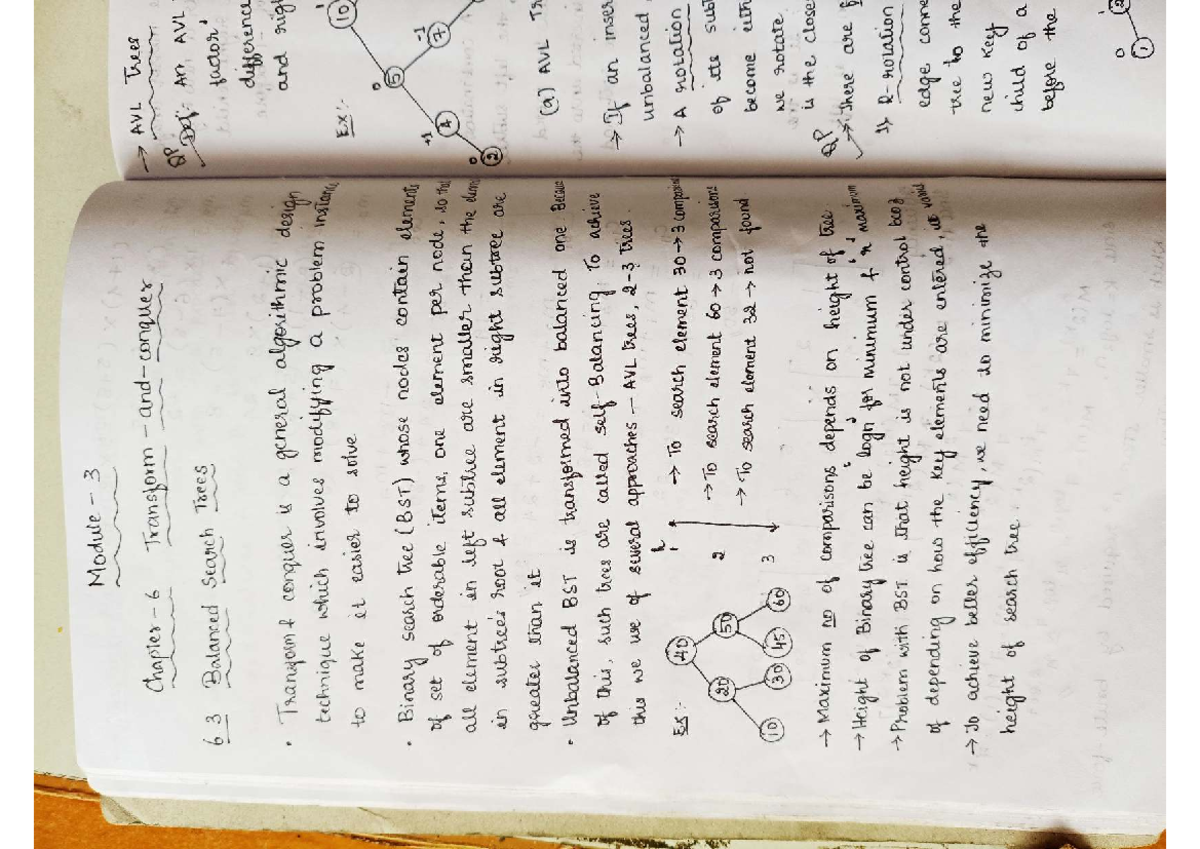 Module - 3
Chapter - 6 Transform - and - conquer
6.3 Balanced Search Trees
• Transform & conquer is a general algorithmic design
technique which involves modifying a problem instance
to make it easier to solve
• Binary search tree (BST) whose nodes contain elements
of set of orderable items, one element per node, so that
all element in left subtree are smaller than the element
in subtree's root & all element in right subtree are
greater than it
• Unbalanced BST is transformed into balanced one. Because
of this, such trees are called self-Balancing. To achieve
this we use of several approaches — AVL trees, 2-3 trees.
Ex:-
40
20 50
10 30 45 60
h
1
2
3
→ To search element 30 → 3 comparisons
→ To search element 60 → 3 comparisons
→ To search element 32 → not found
→ Maximum no of comparisons depends on height of tree
→ Height of Binary tree can be 'logn' for minimum & 'n' maximum
→ Problem with BST is that height is not under control bcoz
of depending on how the key elements are entered, it varies
→ To achieve better efficiency, we need to minimize the
height of search tree.
→ AVL Trees
QP Def: An AVL
factor'
difference
and righ
Ex:-
10
-1
7
0
5
+1
4
0
2
(a) AVL Tr
→ If an inser
unbalanced
→ A rotation
of its subt
become eith
we rotate
is the close
QP
→ There are f
1) R-rotation
edge come
tree to the
new key
child of a
before the
2
0
1